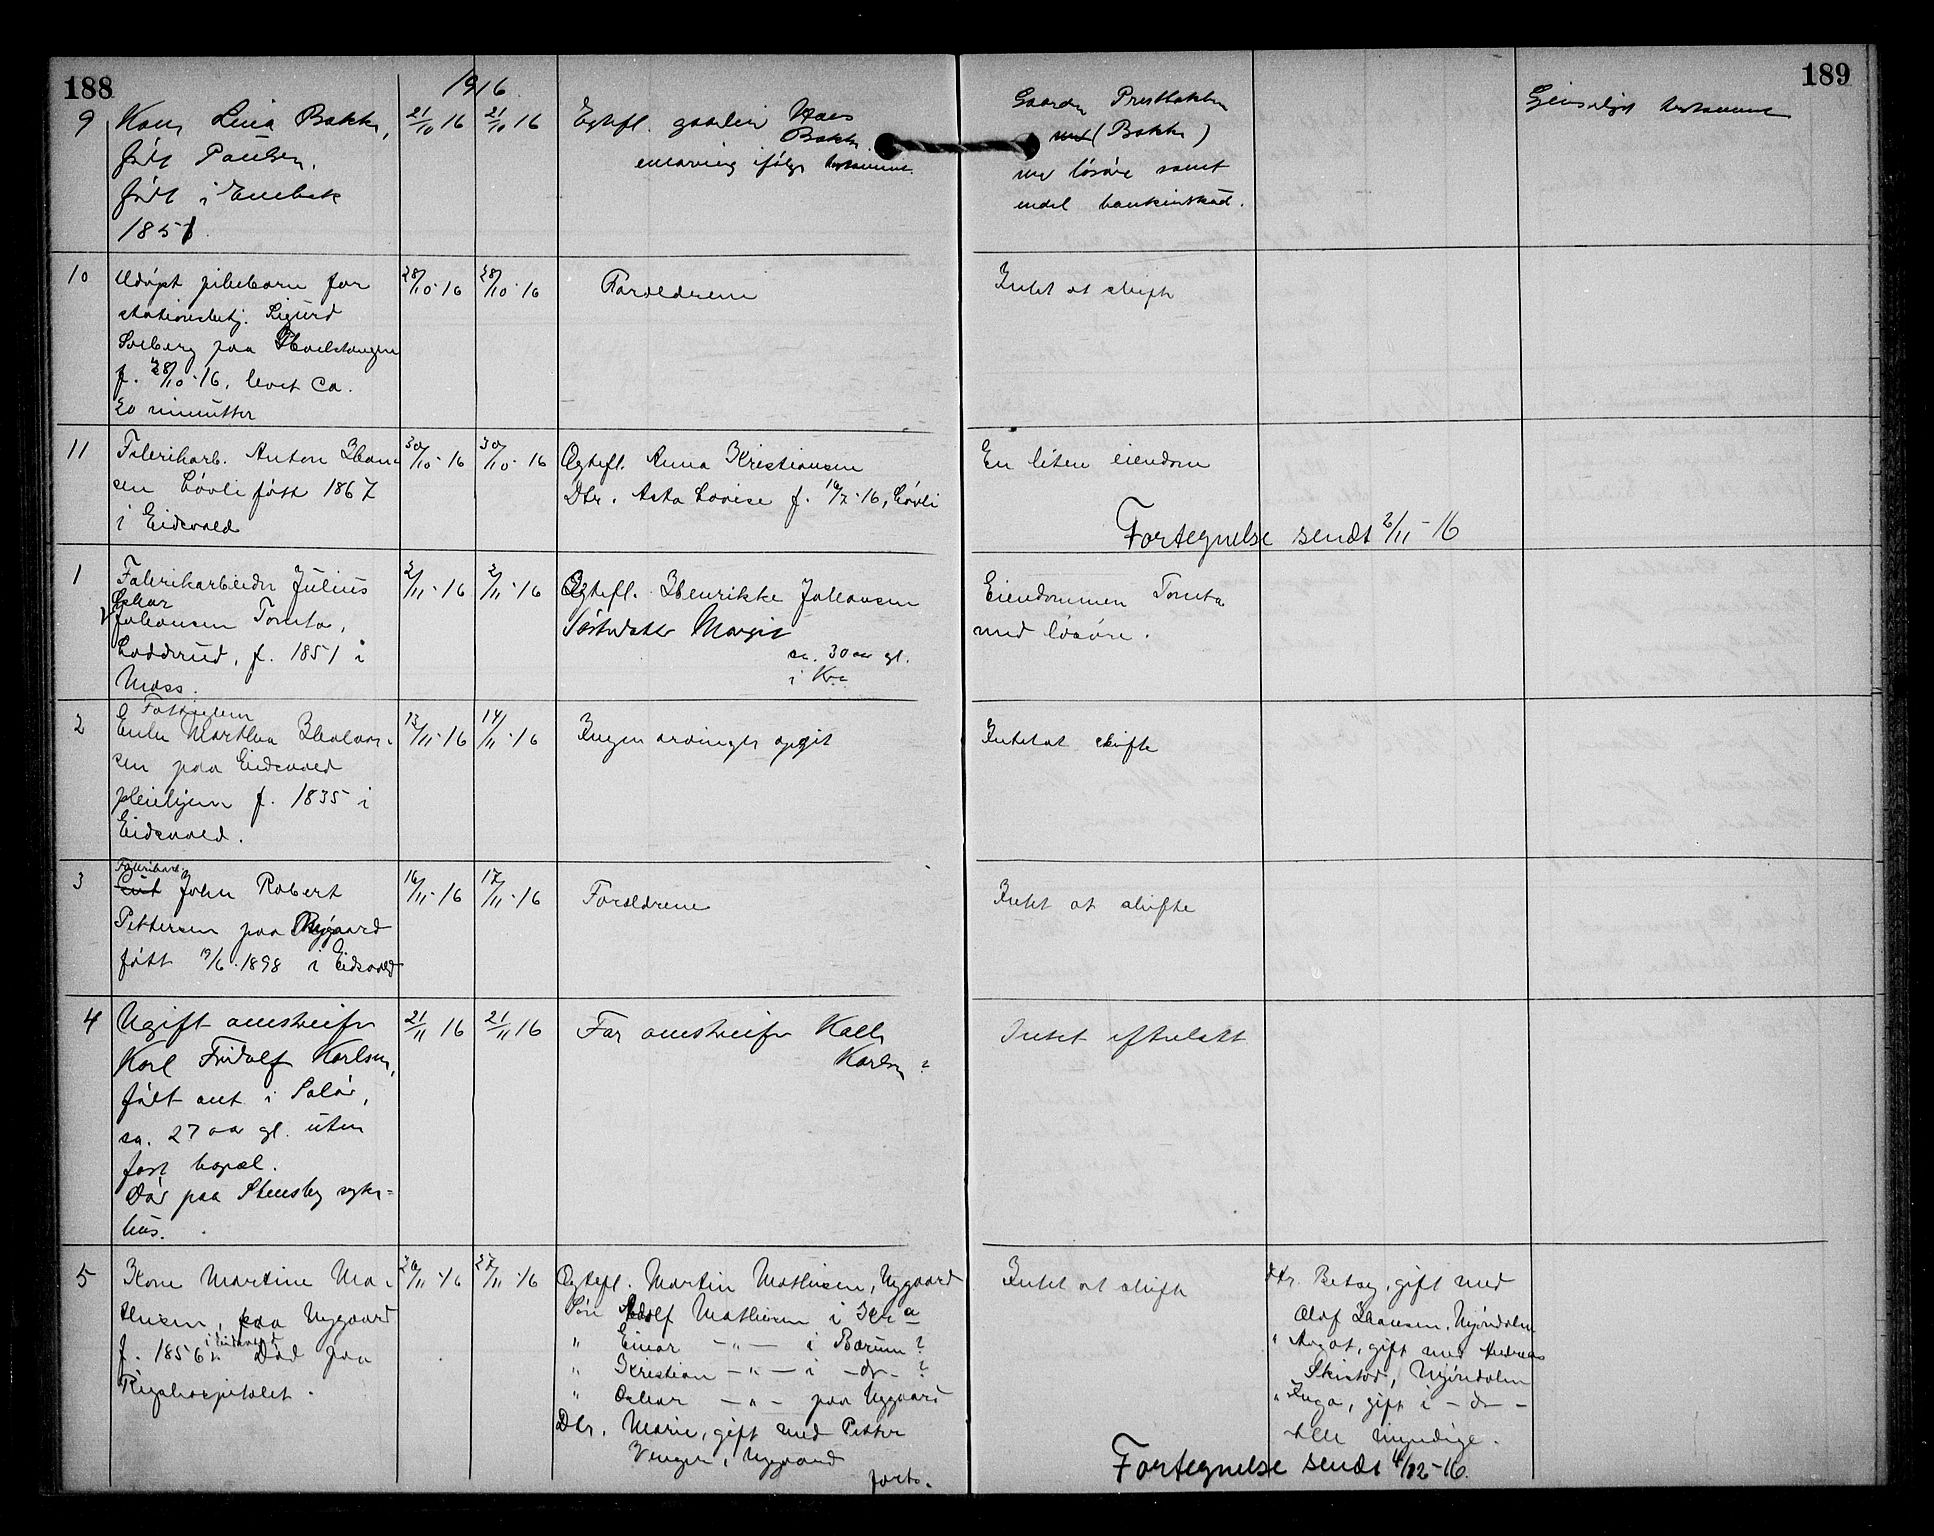 188
1916
189
9 Kone Lina Bakke, 21/10 16 21/10 16 Egtefl. gaardeier Hans
født Paulsen. Bakke.
født i Enebak enearving ifølge testament.
1851.
Gaarden Prestbakken
(Bakke)
med løsøre samt
endel bankinskud.
Gjensidigt testamente
10 Udøpt pikebarn for 28/10-16 28/10-16 Forældrene Intet at skifte
stationsbetj. Sigurd
Solberg paa
f. 28/10-16, levet ca.
20 minutter
11 Fabrikarb. Anton Han- 30/10-16 30/10-16 Egtefl. Anna Kristiansen En liten eiendom
sen Løvli født 1867 Dtr. Asta Lovise f. 16/7-16, Løvli
i Eidsvold
Fortegnelse sendt 2/11-16
1 Fabrikarbeider Julius 2/11-16 2/11-16 Egtefl. Henrikke Johansen Eiendommen Tomta
Oskar
Johansen Tomta, Søsterdatter Margit med løsøre.
Lodderud, f. 1851 i ca. 30 aar gl.
Moss. i Kra
2 Fattiglem
Enke Marthea Halvor- 13/11-16 14/11-16 Ingen arvinger opgit Intet at skifte
sen paa Eidsvold
pleiehjem f. 1835 i
Eidsvold.
3 Fabrikarb.
John Robert 16/11-16 17/11-16 Forældrene Intet at skifte
Pettersen paa Nygaard
født 19/6-1898 i Eidsvold
4 Ugift omstreifer 21/11 16 21/11 16 Far omstreifer Kalle Intet efterlatt
Karl Fridolf Karlsen, Karlsen?
født ant. i Solør,
ca. 27 aar gl. uten
fast bopæl.
Død paa Stensby syke-
hus.
5 Kone Martine Ma- 26/11-16 27/11-16 Egtefl. Martin Mathisen, Nygaard Intet at skifte
thisen, paa Nygaard Søn Adolf Mathisen i Kra
f. 1856 i Eidsvold. Død paa " Einar -"- i Bærum?
Rigshospitalet. " Kristian -"- i -do- ?
" Oskar -"- paa Nygaard
Dtr. Marie, gift med Petter
Venger, Nygaard
forts.
Dtr. Betsy, gift med
Olaf Hansen, Mjøndalen
" Aagot, gift med Andreas
Skistad, Mjøndalen
" Inga, gift i -do-
Alle myndige.
Fortegnelse sendt 4/12-16